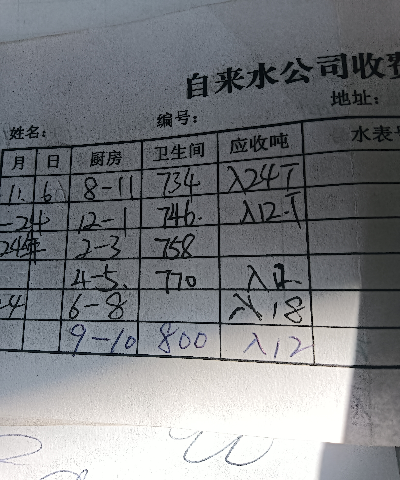 自来水公司收费
编号： 地址：
姓名：
月 日 厨房 卫生间 应收吨 水表
1. 6 8-11 734 入24T
-24 12-1 746. 入12T
24年 2-3 758
4-5. 770 入12
-4 6-8 入18
9-10 800 入12